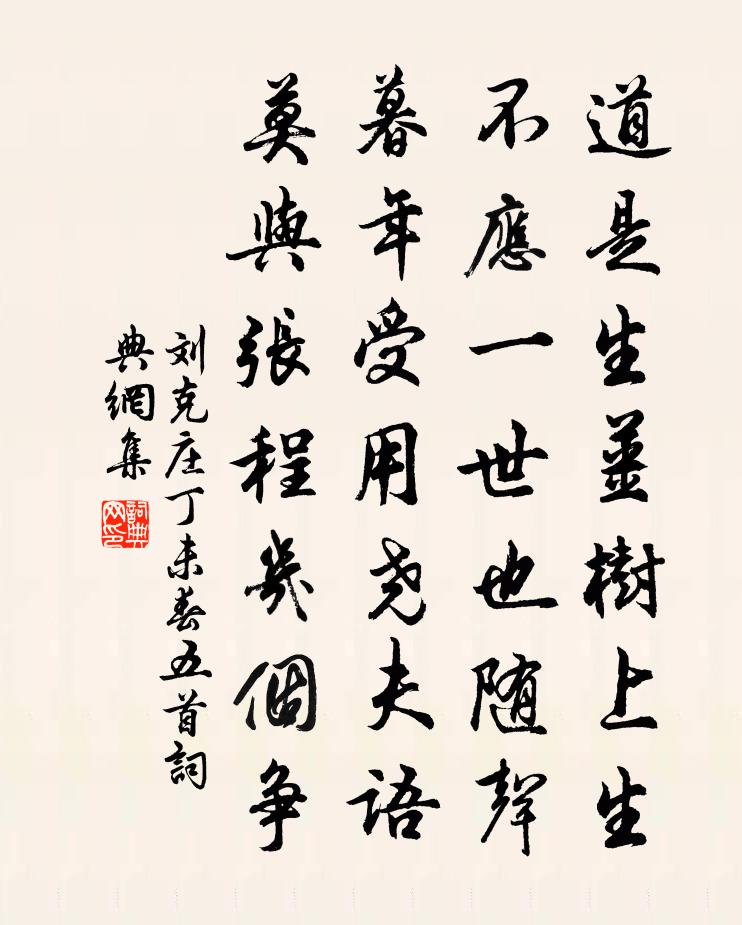 道是生薑樹上生
不應一世也随聲
暮年受用尧夫語
莫與張程幾個争
刘克庄丁未春五首詞
典網集
詞典
网印